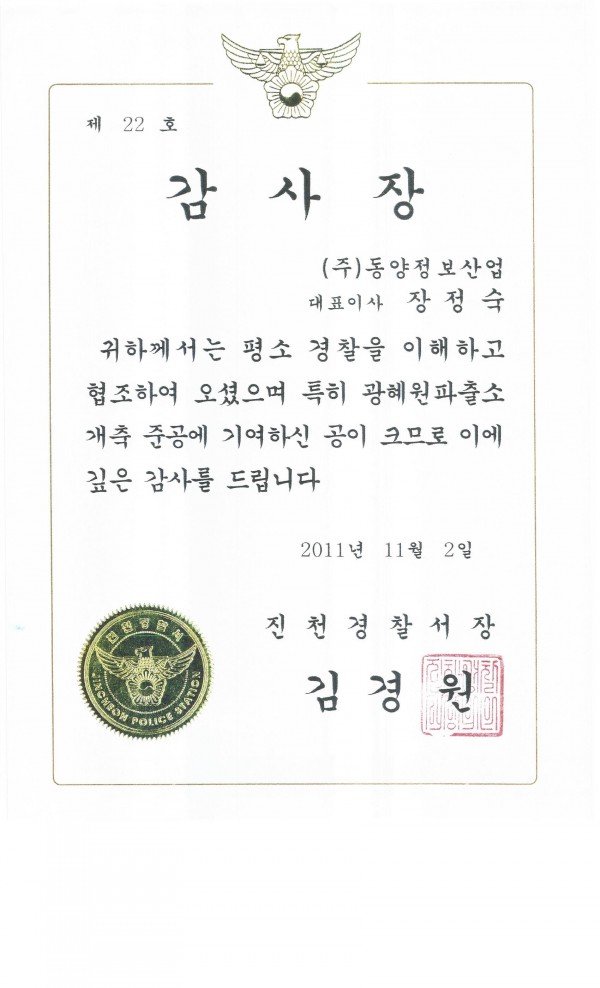 제 22 호
감 사 장
(주)동양정보산업
대표이사 장정숙
귀하께서는 평소 경찰을 이해하고
협조하여 오셨으며 특히 광혜원파출소
개축 준공에 기여하신 공이 크므로 이에
깊은 감사를 드립니다
2011년 11월 2일
진천경찰서장
김경원
진천경찰서
JINCHEON POLICE STATION